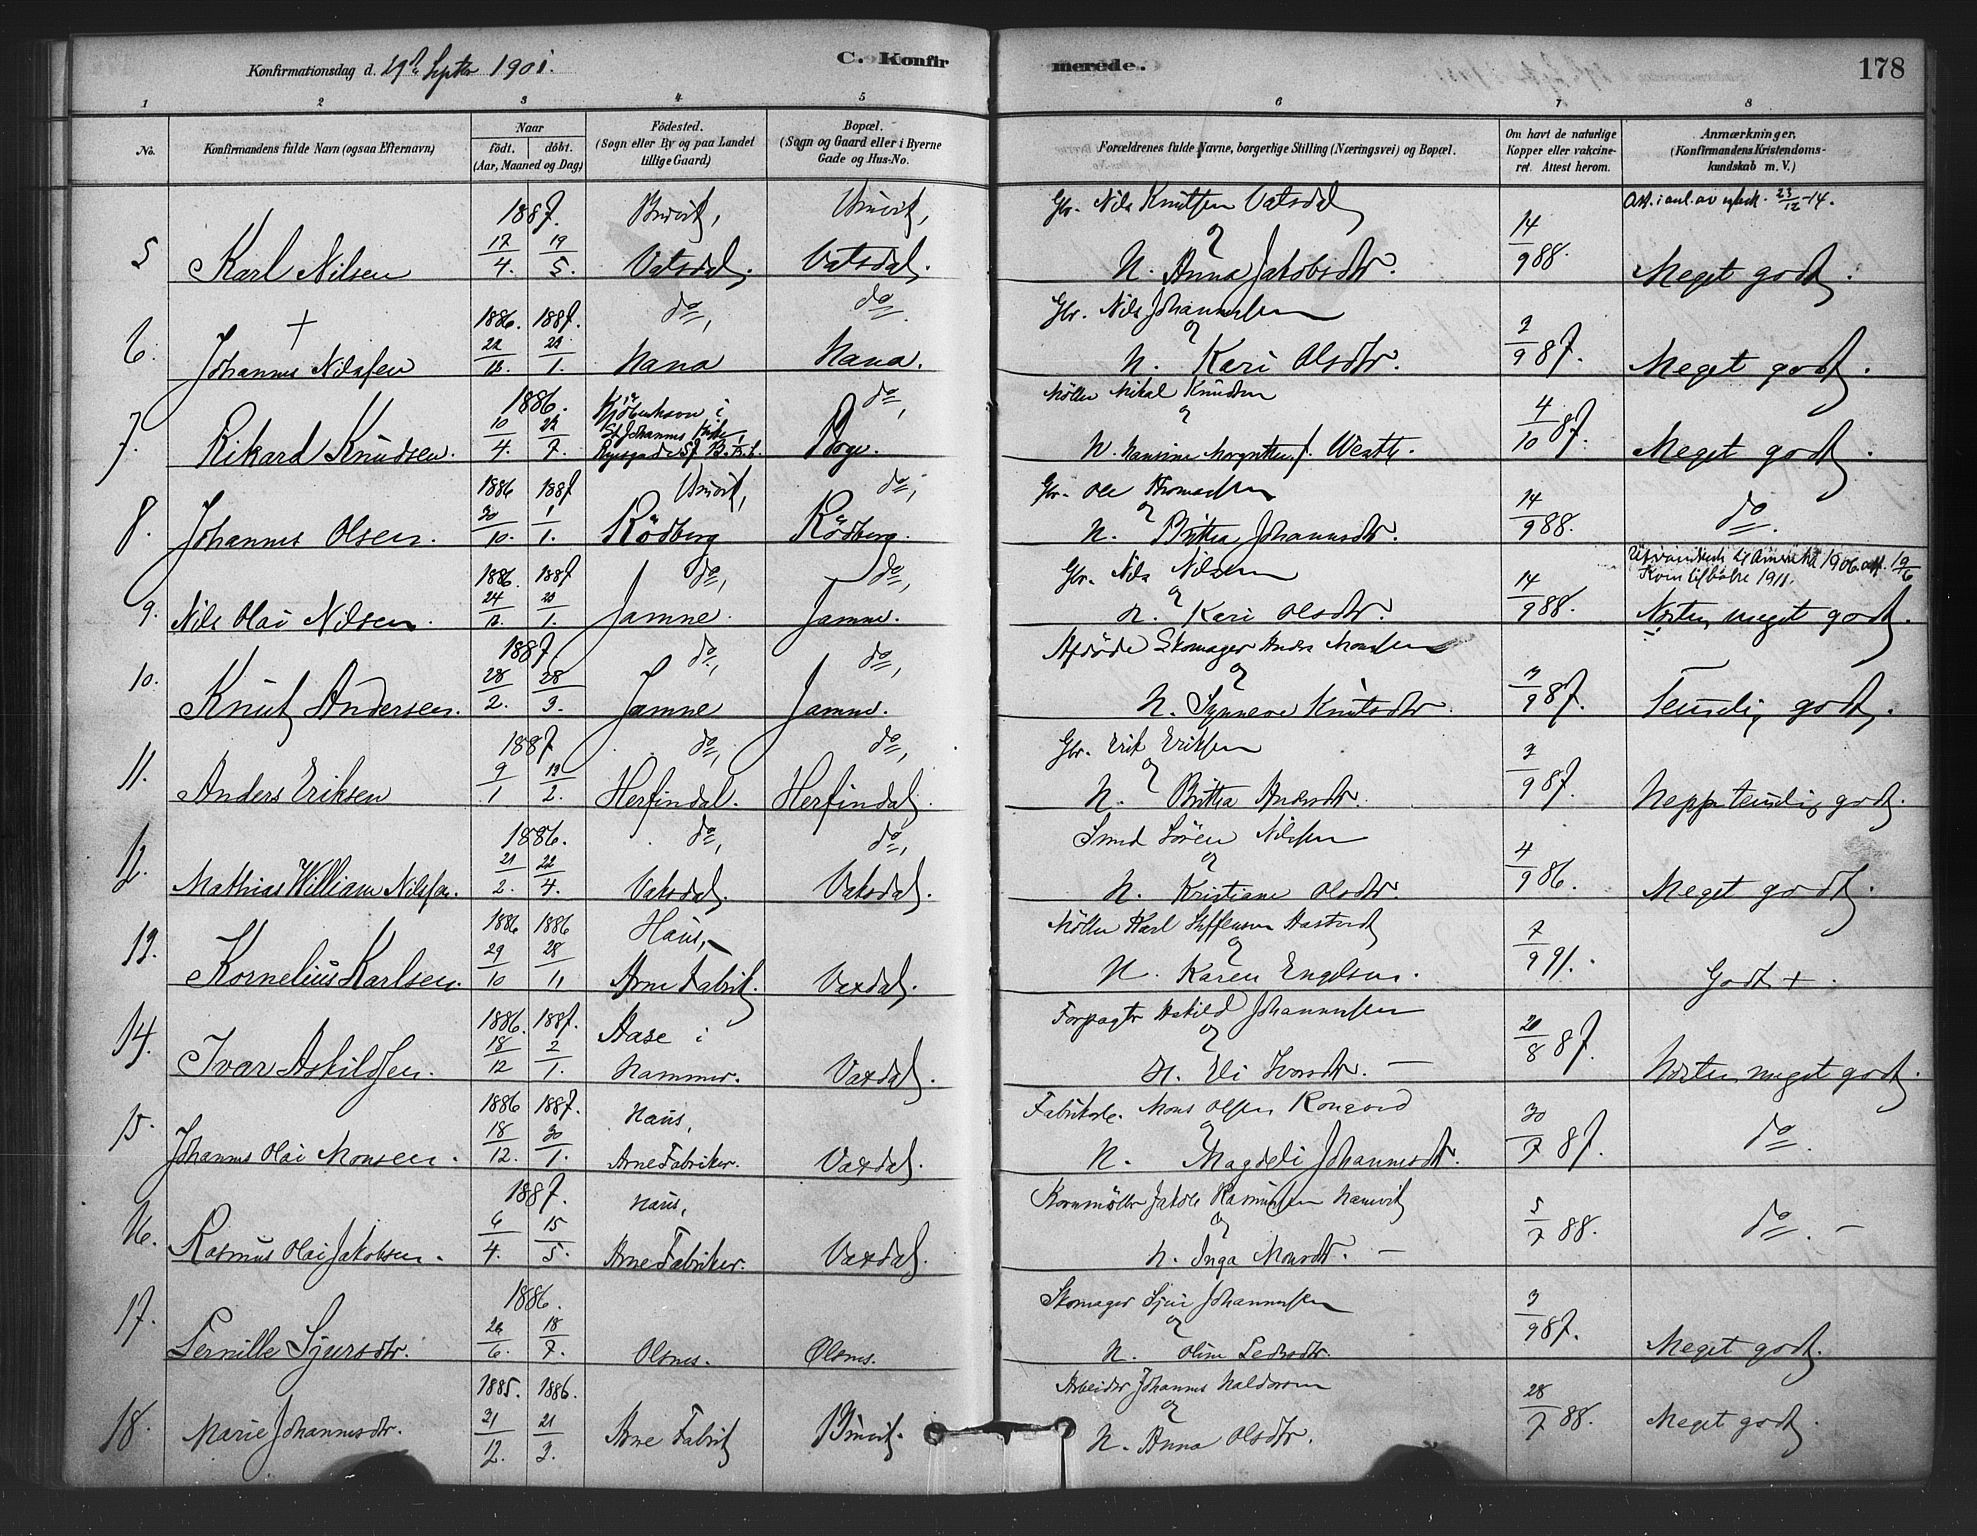 Konfirmationsdag d. 29de Septbr 1901.
C. Konfirmerede.
178
1 2 3 4 5 6 7 8
No.
Konfirmandens fulde Navn (ogsaa Efternavn).
Naar
født. døbt.
(Aar, Maaned og Dag)
Fødested.
(Sogn eller By og paa Landet
tillige Gaard)
Bopæl.
(Sogn og Gaard eller i Byerne
Gade og Hus-No.
Forældrenes fulde Navne, borgerlige Stilling (Næringsvei) og Bopæl.
Om havt de naturlige
Kopper eller vakcine-
ret. Attest herom.
Anmærkninger,
(Konfirmandens Kristendoms-
kundskab m. V.)
5 Karl Nilsen 1887. 17/4. 19/5. Bruvik, Vatsdal. Bruvik, Vatsdal. Gbr. Nils Knutsen Vatsdal
og
H. Anna Jakobsdtr. 14/9 88. 23/12-14. Meget godt.
6. Johannes Nilssen + 1886. 1887. 22/12. 22/1. do, Nana do. Nana. Gbr. Nils Johannessen
og
H. Kari Olsdtr. 2/9 87. Meget godt.
7. Rikard Knudsen. 1886. 10/4. 22/7. Kjøbenhavn i
St. Johannes Kirke do, Boge. Møller Mikal Knudsen
og
H. Hansine f. 4/10 87. Meget godt.
8. Johannes Olsen. 1886 1887 30/10. 1/1. Bruvik, Rödberg do, Rödberg. Gbr. Ole Thomassen
og
H. Brittha Johannesdtr. 14/9 88. do.
9. Nils Olai Nilsen. 1886. 1887 24/12. 23/1. do, Jamne. do, Jamne. Gbr. Nils Nilsen
og
H. Kari Olsdtr. 14/9 88. til Amerika 1906. att. 19/6
Kom tilbake 1911.
Næsten meget godt.
10. Knut Andersen. 1887. 28/2. 28/3. do, Jamne do, Jamne. Afdøde Skomager Anders Monsen
og
H. Synneve Knutsdtr. 3/9 87. Temelig godt.
11. Anders Eriksen 1887 9/1 13/2. do, Herfindal. do, Herfindal. Gbr. Erik Eriksen
og
H. Brittha Andersdtr. 2/9 87. Neppe temelig godt.
12. Mathias William Nilssen. 1886. 21/2. 22/4. do, Vaksdal. do, Vaksdal. Smed Sören Nilssen
og
H. Kristiane Olsdtr. 4/9 86. Meget godt.
13. Kornelius Karlsen. 1886 1886 29/10 28/11 Haus, Arne Fabrik. Vaxdal. Møller Karl Steffensen
og
H. Karen Engelsen. 7/9 91. Godt +.
14. Ivar Askildsen. 1886. 1887. 18/12 2/1. Aase i
Hammer. Vaxdal. Forpagter Askild Johannessen
og
H. Eli Ivarsdtr. — 20/8 87. Næsten meget godt.
15. Johannes Olai Monsen. 1886 1887. 18/12. 30/1. Haus, Arne Fabriker. Vaxdal. Fabrikarb. Mons Olsen
og
H. Magdeli Johannesdtr. 30/7 87. do.
16. Rasmus Olai Jakobsen. 1887. 6/4. 15/5. Haus, Arne Fabriker. Vaxdal. Kornmøller Jakob Rasmussen
og
H. Inga Monsdtr. — 5/7 88. do. —
17. Pernille Sjursdtr. 1886. 26/6. 18/7. Olsnes. Olsnes. Skomager Sjur Johannessen
og
H. Oline Pedersdtr. 3/9 87. Meget godt.
18. Marie Johannesdtr. 1885. 1886. 31/12. 21/3. Arne Fabrik Bruvik. Arbeider Johannes Haldorsen
og
H. Anna Olsdtr. 28/7 88. Meget godt.